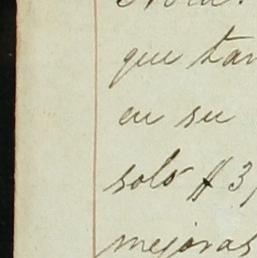 que tan
en su
solo $3,
mejoras